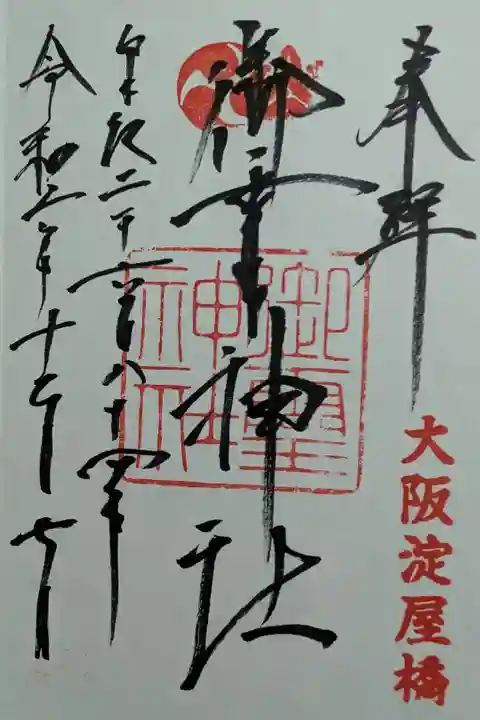 奉拝
大阪淀屋橋
御霊神社
御霊
神
社
皇紀二千六百八十四年
令和六年十二月七日